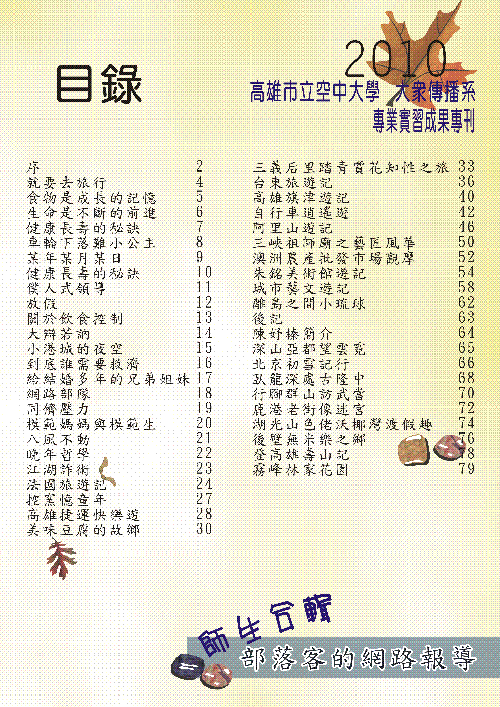 2010
目錄
高雄市立空中大學 大眾傳播系
專業實習成果專刊
序 2
就要去旅行 4
食物是成長的記憶 5
生命是不斷的前進 6
健康長壽的秘訣 7
車輪下落難小公主 8
某年某月某日 9
健康長壽的秘訣 10
僕人式領導 11
放假 12
關於飲食控制 13
大辯若訥 14
小港城的夜空 15
到底誰需要救濟 16
給結婚多年的兄弟姐妹 17
網路部隊 18
同儕壓力 19
模範媽媽與模範生 20
八風不動 21
晚年哲學 22
江湖詐術 23
法國旅遊記 24
控窯憶童年 27
高雄捷運快樂遊 28
美味豆腐的故鄉 30
三義后里踏青賞花知性之旅 33
台東旅遊記 36
高雄旗津遊記 40
自行車逍遙遊 42
阿里山遊記 46
三峽祖師廟之藝匠風華 50
澳洲農產批發市場觀摩 52
朱銘美術館遊記 54
城市藝文遊記 58
離島之間小琉球 62
後記 63
陳妤榛簡介 64
深山亞都望雲霓 65
北京初雪記行 66
臥龍深處古隆中 68
行腳群山訪武當 70
鹿港老街像迷宮 72
湖光山色佬沃椰灣渡假趣 74
後壁無米樂之鄉 76
登高雄壽山記 78
霧峰林家花園 79
師生合輯
部落客的網路報導